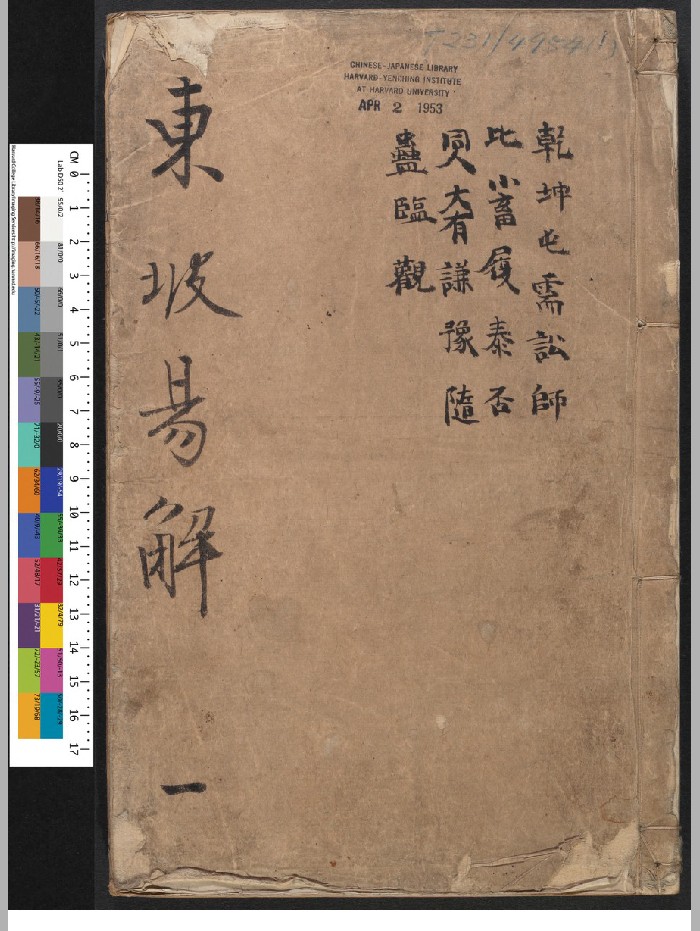 T 231/4954(1)
CHINESE-JAPANESE LIBRARY
HARVARD-YENCHING INSTITUTE
AT HARVARD UNIVERSITY
APR 2 1953
乾坤屯需訟師
比小畜履泰否
同人大有謙豫隨
蠱臨觀
東坡易解
一
CM 0 1 2 3 4 5 6 7 8 9 10 11 12 13 14 15 16 17